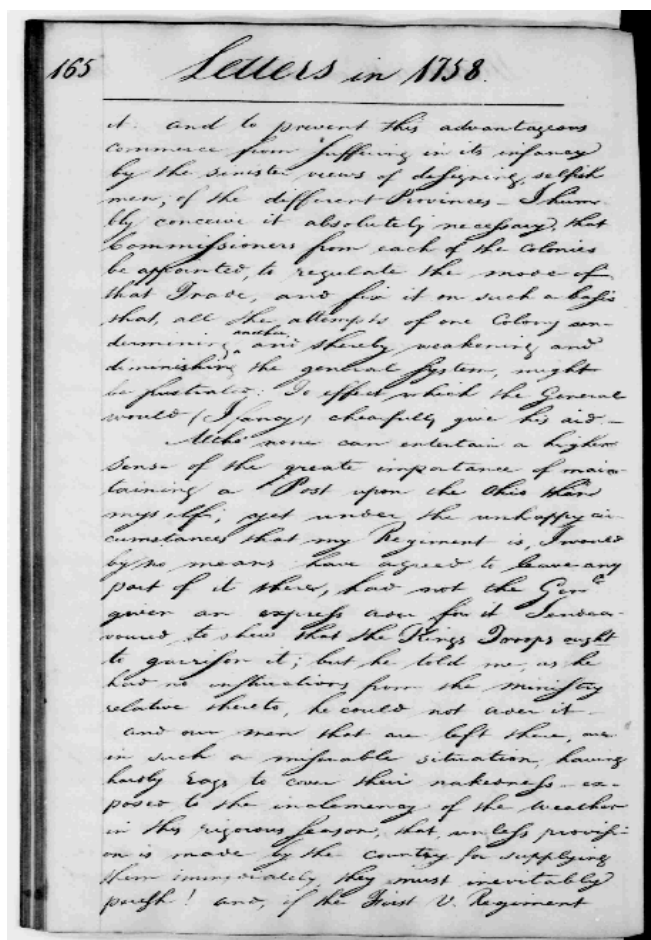 165 Letters in 1758.
it. and to prevent this advantageous
commerce from suffering in its infancy
by the sinister views of designing, selfish
men, of the different Provinces - I hum-
bly conceive it absolutely necessary, that
Commissioners from each of the Colonies
be appointed, to regulate the mode of
that Trade, and fix it on such a basis
that, all the attempts of one Colony un-
another,
dermining and thereby weakening and
diminishing the general System, might
be frustrated: To effect which the General
would (I fancy) chearfully give his aid. -
Altho' none can entertain a higher
sense of the great importance of main-
taining a Post upon the Ohio than
myself; yet under the unhappy cir-
cumstances that my Regiment is, I would
by no means have agreed to leave any
part of it there, had not the Genl
given an express order for it I endea-
voured to shew that the Kings Troops ought
to garrison it; but he told me, as he
had no instructions from the ministry
relative thereto, he could not order it -
and our men that are left there, are
in such a miserable situation, having
hardly rags to cover their nakedness - ex-
posed to the inclemency of the weather
in this rigorous season, that, unless provisi-
on is made by the country for supplying
them immediately, they must inevitably
perish! and, if the First V. Regiment